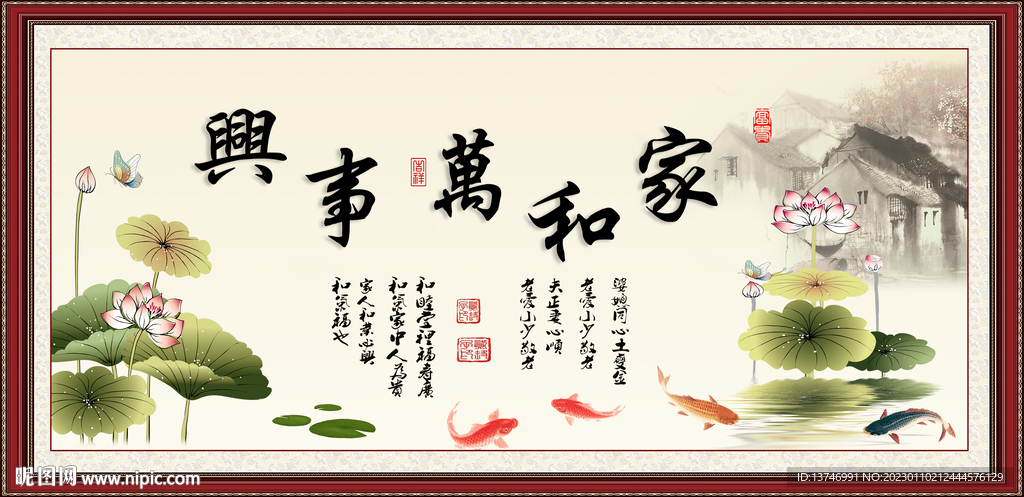 家和萬事興
富貴
吉祥
婆媳同心土變金
老愛小少敬老
夫正妻心順
老愛小少敬老
和睦堂裡福壽廣
和氣家中人為貴
家人和業必興
和氣福也
昵图网 www.nipic.com
ID:13746991 NO:20230110212444576129